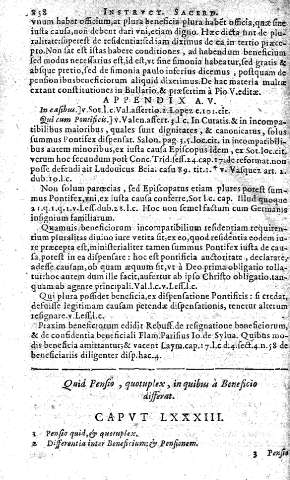 258 INSTRUCT. SACERD.
vnum habet officium, at plura beneficia plura habet officia, quæ sine
iusta causa, non debent dari vni, etiam digno. Hæc dicta sint de plu-
ralitate; superest de residentia: sed iam diximus de ea in tertio præce-
pto. Non tam est istas habere conditiones, ad habendum beneficium
sed modus necessarius est, id est, vt sine simonia habeatur, sed gratis &
absque pretio, sed de simonia paulo inferius dicemus, postquam de
pensionibus beneficiorum aliquid dixerimus. De hac materia multæ
extant constitutiones in Bullario, & præsertim à Pio V. editæ.
APPENDIX A.V.
In casibus.] v. Sot. l.c. Val. assertio. 2. Lopez c. 101. cit.
Qui cum Pontificis.] v. Valen. assert. 3. l.c. In Curatis. & in incompa-
tibilibus maioribus, quales sunt dignitates, & canonicatus, solus
summus Pontifex dispensat. Salon. pag. 5. loc. cit. in incompatibili-
bus autem minoribus, ex iusta causa Episcopus idem, ex Sot. loc. cit.
verum hoc secundum post Conc. Trid. sess. 24. cap. 17. de reformat. non
posse defendi ait Ludouicus Beia. casu 89. tit. 1. * v. Vasquez art. 2.
dub. 19. l.c.
Non solum parœcias, sed Episcopatus etiam plures potest sum-
mus Pontifex, vni, ex iusta causa conferre, Sot l.c. cap. Illud quoque
21. q. 1. q. 1. v. Less. dub. 28. l.c. Hoc non semel factum cum Germanis
insignium familiarum.
Quamuis beneficiorum incompatibilium residentiam requiren-
tium pluralitas diuino iure vetita sit, ex eo, quod residentia eodem iu-
re præcepta est, ministerialiter tamen summus Pontifex iusta de cau-
sa, potest in ea dispensare: hoc est pontificia auctoritate, declarare,
adesse causam, ob quam æquum sit, vt à Deo prima obligatio rolla-
tur hoc autem dum ille facit, aufertur ab ipso Christo obligatio, tan-
quam ab agente principali. Val. l.c. v. Less. l.c.
Qui plura possidet beneficia, ex dispensatione Pontificis: si credat,
defuisse legitimam causam petendæ dispensationis, tenetur alterum
resignare. v. Less. l.c.
Praxim beneficiorum edidit Rebuff. de resignatione beneficiorum,
& de confidentia beneficiali Flam. Parisius Io. de Sylua. Quibus mo-
dis beneficia amittantur; & vacent Laym. cap. 17. l.c d. 4. sect. 4. n. 58 de
beneficiariis diligenter disp. hac. 4.
Quid Pensio, quotuplex, in quibus à Beneficio
differat.
CAPVT LXXXIII.
1 Pensio quid, & quotuplex.
2 Differentia inter Beneficium; & Pensionem.
3 Pensio